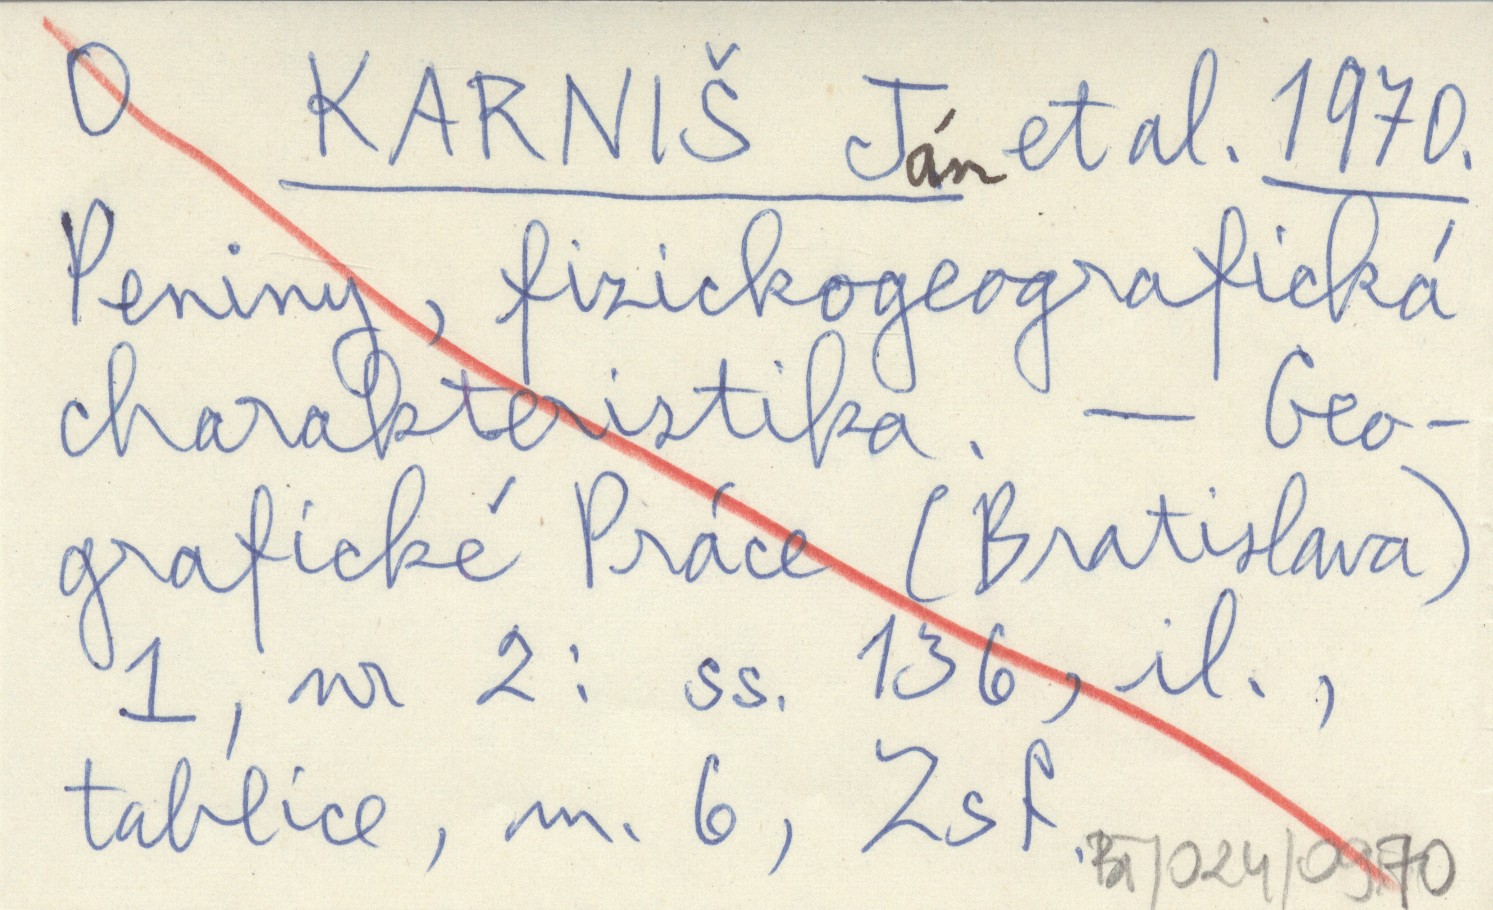 O KARNIŠ Ján et al. 1970.
Peniny, fizickogeografická
charakteristika. — Geo-
grafické Práce (Bratislava)
1, nr 2: ss. 136, il.,
tablice, m. 6, Zsf.
/024/09.70